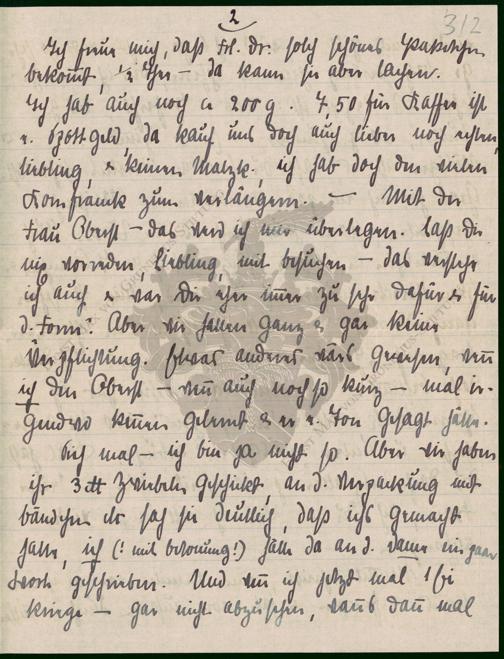 2
312
Ich freue mich, daß Frl. Dr. solch schönes Paketchen
bekomt, ½ Thee – da kann sie aber lachen.
Ich hab auch noch ca 200 g. 7.50 für Kaffee ist
e. Spottgeld, da kauf uns doch auch lieber noch echten,
Liebling, & keinen Malzk., ich hab doch den vielen
Kornfranck zum verlängern. – Mit der
Frau Oberst – das werd ich mir überlegen. Laß Dir
nix vorreden, Liebling, mit besuchen – das verstehe
ich auch & war Dir eher imer zu sehr dafür & für
d. „Form“. Aber wir hatten ganz & gar keine
Verpflichtung. Etwas anderes wärs gewesen, wen
ich den Oberst – wen auch noch so kurz – mal ir-
gendwo kenen gelernt & er e. Ton gesagt hätte.
Sieh mal – ich bin ja nicht so. Aber wir haben
ihr 3 ℔ Zwiebeln geschickt, an d. Verpackung mit
bändchen etc sah sie deutlich, daß ichs gemacht
hatte, ich (! mit betonung!) hätte da an d. Dame ein paar
Worte geschrieben. Und wen ich jetzt mal
kriege – gar nicht abzusehen, wans dan mal